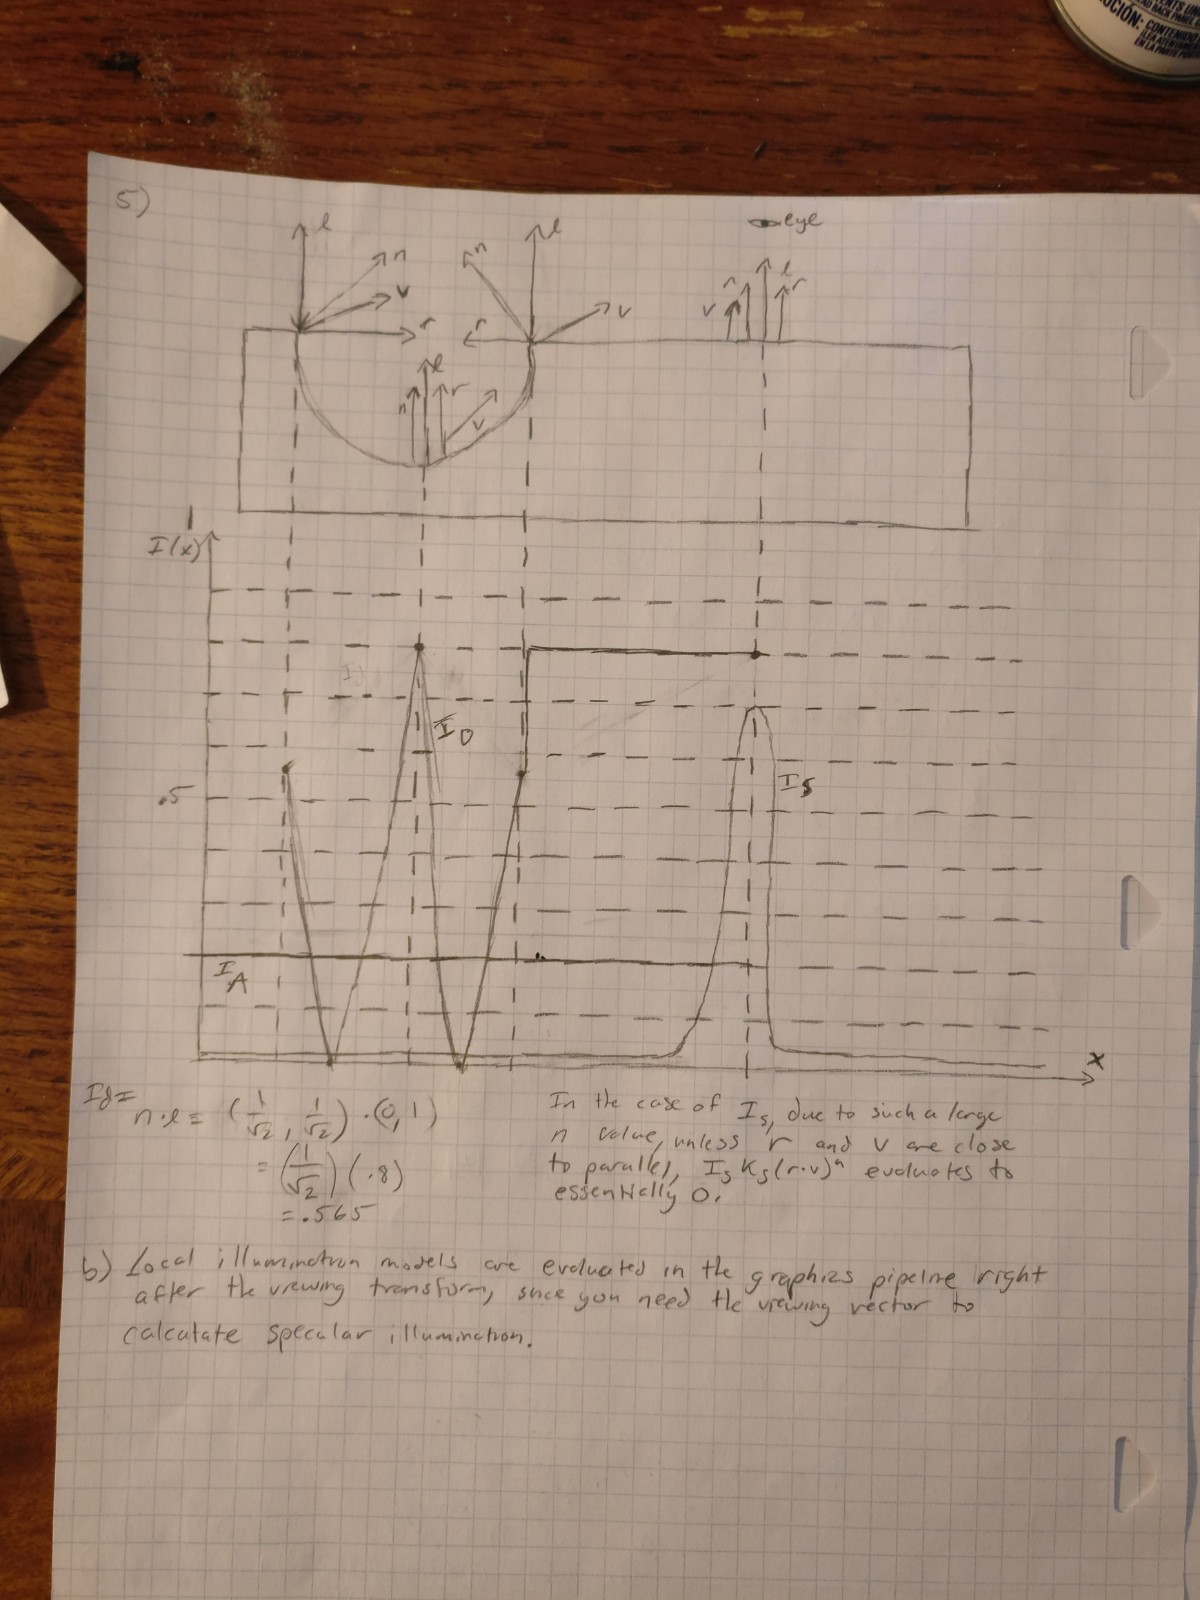 CENTS UN
CUCIÓN: CONTENIDO
EN LA PARTE
5)
eye
l
n
v
r
n
l
r
v
v
n
l
r
n
l
r
v
I(x)
I_D
.5
I_S
I_A
x
Id=
n·l = (1/√2, 1/√2)·(0,1)
= (1/√2)(.8)
= .565
In the case of I_S, due to such a large
n value, unless r and v are close
to parallel, I_S K_S(r·v)^n evaluates to
essentially 0.
b) Local illumination models are evaluated in the graphics pipeline right
after the viewing transform, since you need the viewing vector to
calculate specular illumination.